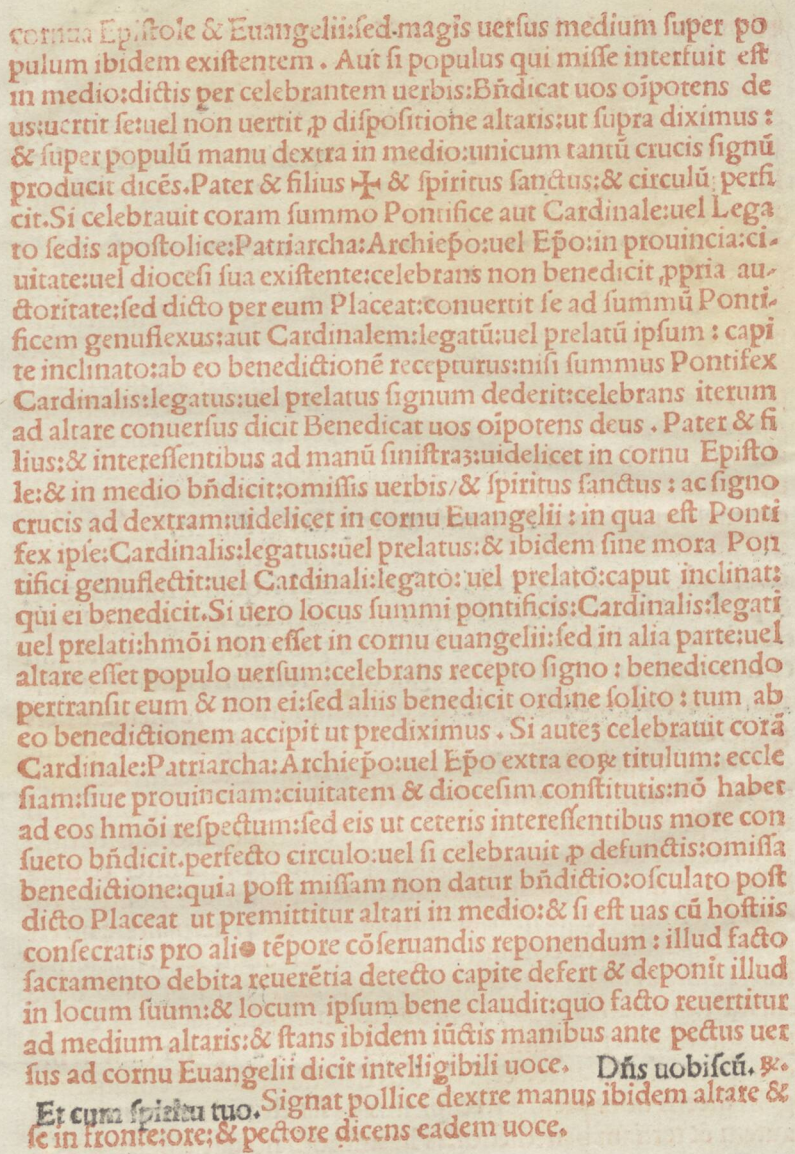 cornua Epistole & Euangelii:sed.magis uersus medium super po
pulum ibidem existentem . Aut si populus qui misse interfuit est
in medio:dictis ꝑer celebrantem uerbis:Bn̄dicat uos oīpotens de
us:uertit se:uel non uertit ꝓ dispositione altaris:ut supra diximus :
& super populū manu dextra in medio:unicum tantū crucis signū
producit dicēs.Pater & filius ✠ & spiritus sanctus:& circulū perfi
cit.Si celebrauit coram summo Pontifice aut Cardinale:uel Lega
to sedis apostolice:Patriarcha:Archiep̄o:uel Ep̄o:in prouincia:ci-
uitate:uel diocesi sua existente:celebrans non benedicit ꝓpria au-
ctoritate:sed dicto per eum Placeat:conuertit se ad summū Ponti-
ficem genuflexus:aut Cardinalem:legatū:uel prelatū ipsum : capi
te inclinato:ab eo benedictionē recepturus:nisi summus Pontifex
Cardinalis:legatus:uel prelatus signum dederit:celebrans iterum
ad altare conuersus dicit Benedicat uos oīpotens deus . Pater & fi
lius:& interessentibus ad manū sinistraʒ:uidelicet in cornu Episto
le:& in medio bn̄dicit:omissis uerbis/& spiritus sanctus : ac signo
crucis ad dextram:uidelicet in cornu Euangelii : in qua est Ponti
fex ipse:Cardinalis:legatus:uel prelatus:& ibidem sine mora Pon
tifici genuflectit:uel Cardinali:legato: uel prelato:caput inclinat:
qui ei benedicit.Si uero locus summi pontificis:Cardinalis:legati
uel prelati:hmōi non esset in cornu euangelii:sed in alia parte:uel
altare esset populo uersum:celebrans recepto signo : benedicendo
pertransit eum & non ei:sed aliis benedicit ordine solito : tum ab
eo benedictionem accipit ut prediximus . Si auteʒ celebrauit corā
Cardinale:Patriarcha:Archiep̄o:uel Ep̄o extra eoꝝ titulum: eccle
siam:siue prouinciam:ciuitatem & diocesim constitutis:nō habet
ad eos hmōi respectum:sed eis ut ceteris interessentibus more con
sueto bn̄dicit.perfecto circulo:uel si celebrauit ꝓ defunctis:omissa
benedictione:quia post missam non datur bn̄dictio:osculato post
dicto Placeat ut premittitur altari in medio:& si est uas cū hostiis
consecratis pro alio tēpore cōseruandis reponendum : illud facto
sacramento debita reuerētia detecto capite defert & deponit illud
in locum suum:& locum ipsum bene claudit:quo facto reuertitur
ad medium altaris:& stans ibidem iūctis manibus ante pectus uer
sus ad cornu Euangelii dicit intelligibili uoce. Dn̄s uobiscū. ℞.
Et cum spiritu tuo. Signat pollice dextre manus ibidem altare &
se in fronte:ore:& pectore dicens eadem uoce.